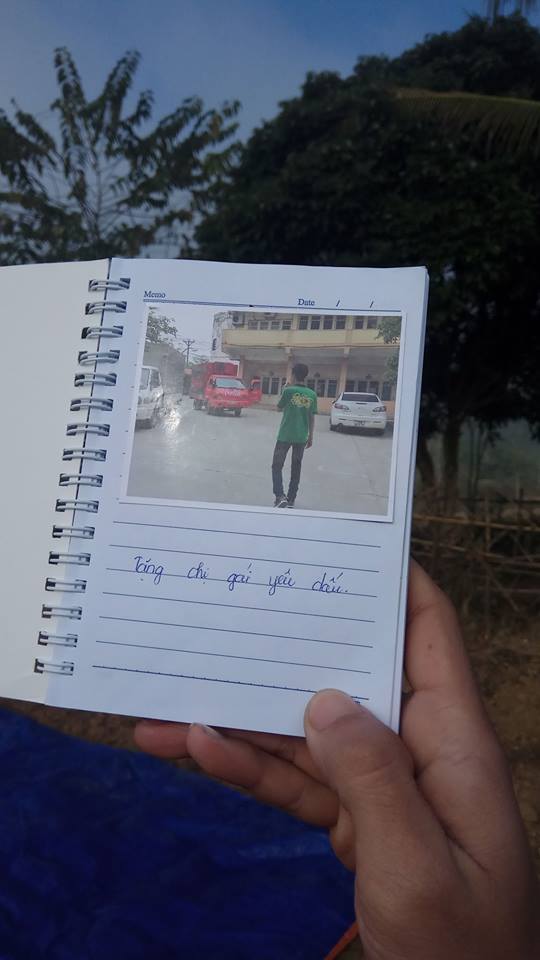 Memo Date / /
Tặng chị gái yêu dấu.